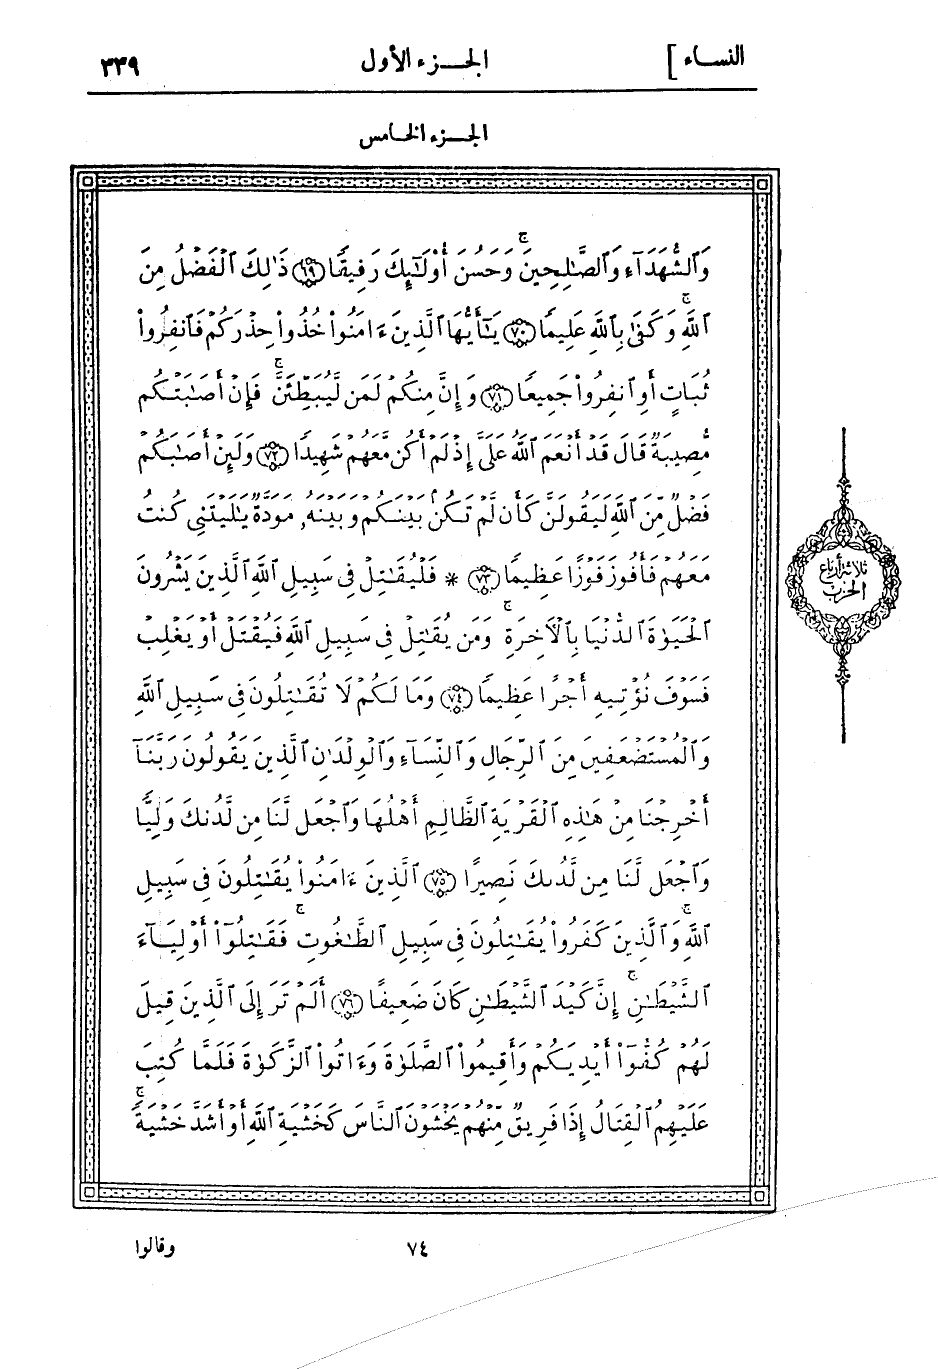 النساء ]
الجزء الأول
٣٣٩
الجزء الخامس
وَٱلشُّهَدَآءِ وَٱلصَّـٰلِحِينَ ۚ وَحَسُنَ أُوْلَـٰٓئِكَ رَفِيقًا ﴿٦٩﴾ ذَٰلِكَ ٱلْفَضْلُ مِنَ
ٱللَّهِ ۚ وَكَفَىٰ بِٱللَّهِ عَلِيمًا ﴿٧٠﴾ يَـٰٓأَيُّهَا ٱلَّذِينَ ءَامَنُواْ خُذُواْ حِذْرَكُمْ فَٱنفِرُواْ
ثُبَاتٍ أَوِ ٱنفِرُواْ جَمِيعًا ﴿٧١﴾ وَإِنَّ مِنكُمْ لَمَن لَّيُبَطِّئَنَّ ۚ فَإِنْ أَصَـٰبَتْكُم
مُّصِيبَةٌ قَالَ قَدْ أَنْعَمَ ٱللَّهُ عَلَىَّ إِذْ لَمْ أَكُن مَّعَهُمْ شَهِيدًا ﴿٧٢﴾ وَلَئِنْ أَصَـٰبَكُمْ
فَضْلٌ مِّنَ ٱللَّهِ لَيَقُولَنَّ كَأَن لَّمْ تَكُنۢ بَيْنَكُمْ وَبَيْنَهُۥ مَوَدَّةٌ يَـٰلَيْتَنِى كُنتُ
مَعَهُمْ فَأَفُوزَ فَوْزًا عَظِيمًا ﴿٧٣﴾ * فَلْيُقَـٰتِلْ فِى سَبِيلِ ٱللَّهِ ٱلَّذِينَ يَشْرُونَ
ٱلْحَيَوٰةَ ٱلدُّنْيَا بِٱلْـَٔاخِرَةِ ۚ وَمَن يُقَـٰتِلْ فِى سَبِيلِ ٱللَّهِ فَيُقْتَلْ أَوْ يَغْلِبْ
فَسَوْفَ نُؤْتِيهِ أَجْرًا عَظِيمًا ﴿٧٤﴾ وَمَا لَكُمْ لَا تُقَـٰتِلُونَ فِى سَبِيلِ ٱللَّهِ
وَٱلْمُسْتَضْعَفِينَ مِنَ ٱلرِّجَالِ وَٱلنِّسَآءِ وَٱلْوِلْدَٰنِ ٱلَّذِينَ يَقُولُونَ رَبَّنَآ
أَخْرِجْنَا مِنْ هَـٰذِهِ ٱلْقَرْيَةِ ٱلظَّالِمِ أَهْلُهَا وَٱجْعَل لَّنَا مِن لَّدُنكَ وَلِيًّا
وَٱجْعَل لَّنَا مِن لَّدُنكَ نَصِيرًا ﴿٧٥﴾ ٱلَّذِينَ ءَامَنُواْ يُقَـٰتِلُونَ فِى سَبِيلِ
ٱللَّهِ ۚ وَٱلَّذِينَ كَفَرُواْ يُقَـٰتِلُونَ فِى سَبِيلِ ٱلطَّـٰغُوتِ ۚ فَقَـٰتِلُوٓاْ أَوْلِيَآءَ
ٱلشَّيْطَـٰنِ ۚ إِنَّ كَيْدَ ٱلشَّيْطَـٰنِ كَانَ ضَعِيفًا ﴿٧٦﴾ أَلَمْ تَرَ إِلَى ٱلَّذِينَ قِيلَ
لَهُمْ كُفُّوٓاْ أَيْدِيَكُمْ وَأَقِيمُواْ ٱلصَّلَوٰةَ وَءَاتُواْ ٱلزَّكَوٰةَ فَلَمَّا كُتِبَ
عَلَيْهِمُ ٱلْقِتَالُ إِذَا فَرِيقٌ مِّنْهُمْ يَخْشَوْنَ ٱلنَّاسَ كَخَشْيَةِ ٱللَّهِ أَوْ أَشَدَّ خَشْيَةً ۚ
ثلاثة أرباع
الحزب
٧٤
وقالوا